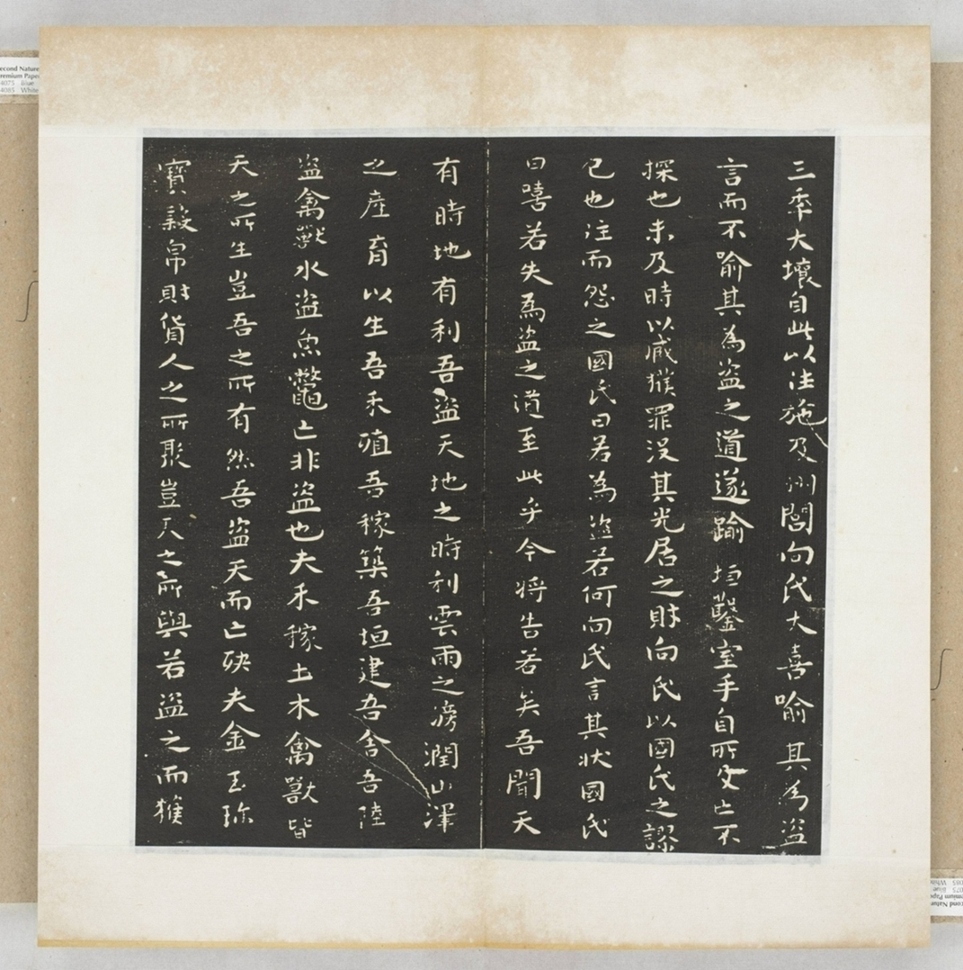 三季大壤自此以往施及州閭向氏大喜喻其為盜
言而不喻其為盜之道遂踰垣鑿室手自所及亡不
探也未及時以臧獲罪沒其先居之財向氏以國氏之謬
己也往而怨之國氏曰若為盜若何向氏言其狀國氏
曰嘻若失為盜之道至此乎今將告若矣吾聞天
有時地有利吾盜天地之時利雲雨之滂潤山澤
之產育以生吾禾殖吾稼築吾垣建吾舍吾陸
盜禽獸水盜魚鼈亡非盜也夫禾稼土木禽獸皆
天之所生豈吾之所有然吾盜天而亡殃夫金玉珍
寶穀帛財貨人之所聚豈天之所與若盜之而獲